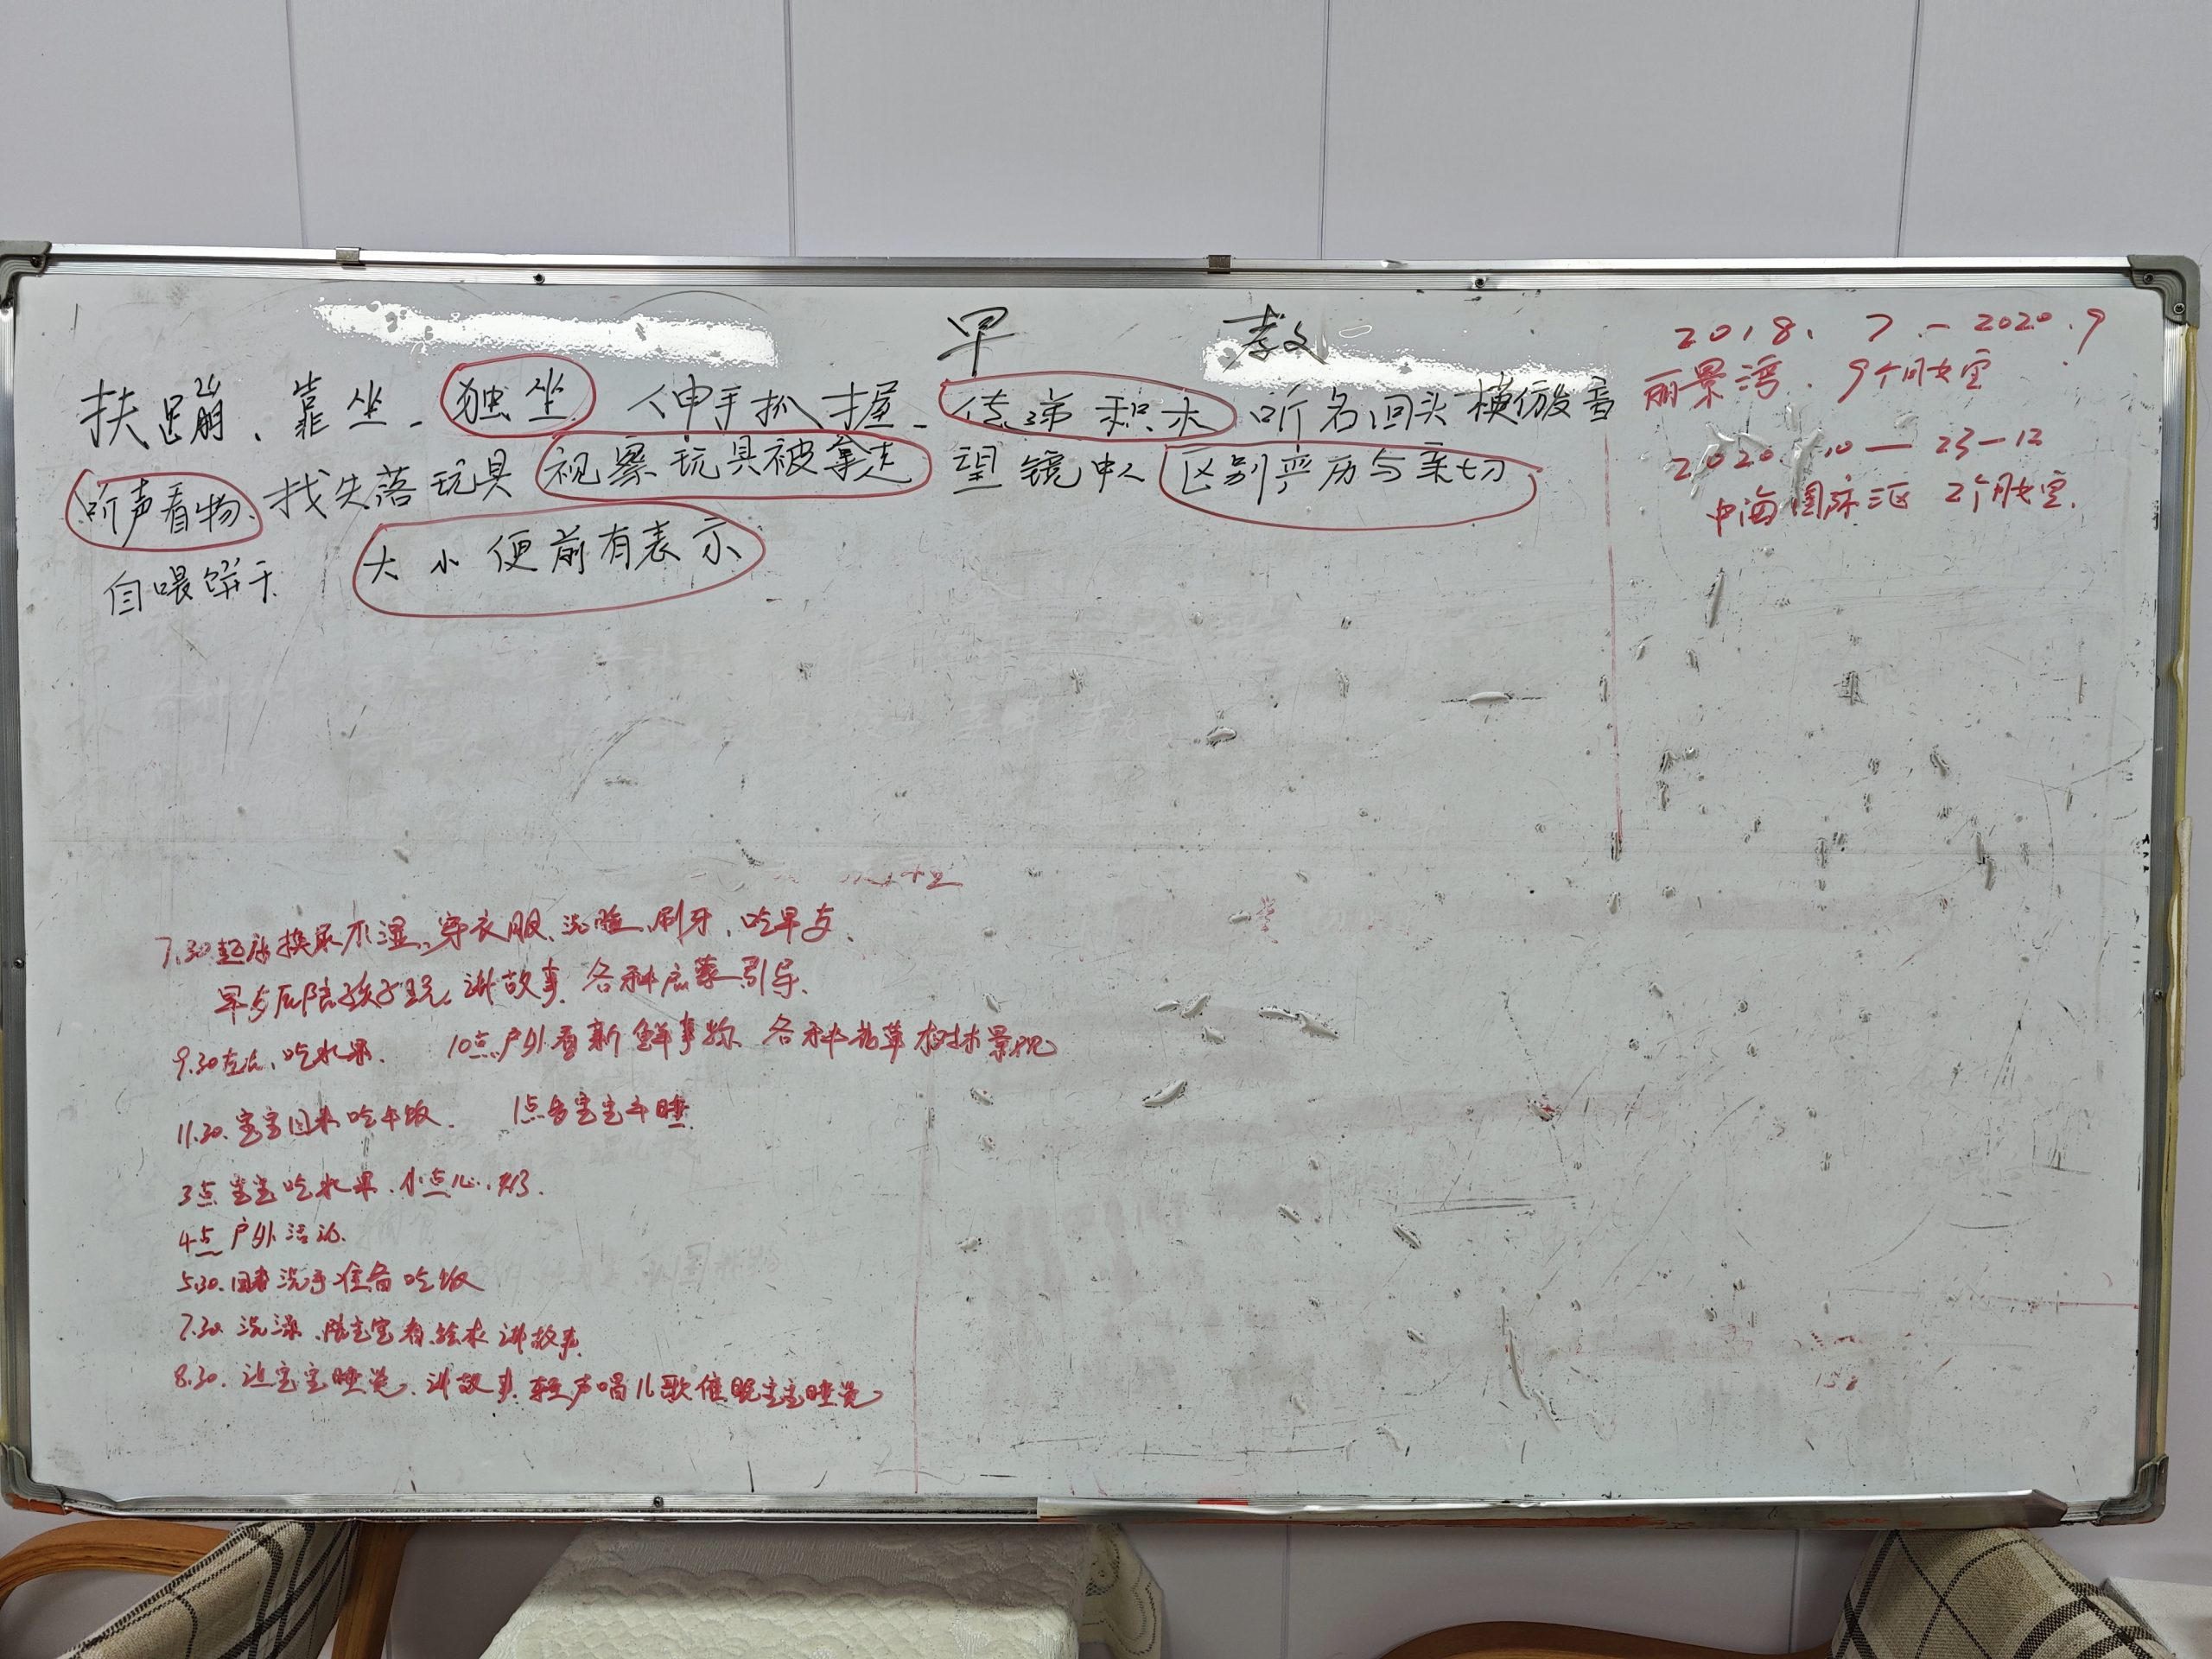 早 教
扶蹦、靠坐、独坐 伸手抓握、传递积木 听名回头 模仿发音
听声看物、找失落玩具 视察玩具被拿走 望镜中人 区别严厉与亲切
自喂饼干 大小便前有表示
2018.7-2020.9
丽景湾.9个月女宝
2020.10—23-12
中海国际汇 2个月女宝.
7.30起床换尿不湿、穿衣服、洗脸、刷牙、吃早点、
早点后陪孩子玩、讲故事、各种启蒙引导、
9.30左右、吃水果、 10点户外看新鲜事物、各种花草树木景观
11.30.宝宝回来吃午饭. 1点多宝宝午睡.
3点宝宝吃水果、小点心、奶.
4点户外活动.
5.30.回来洗手准备吃饭
7.30 洗澡、陪宝宝看绘本讲故事
8.30.让宝宝睡觉、讲故事、轻声唱儿歌催眠宝宝睡觉